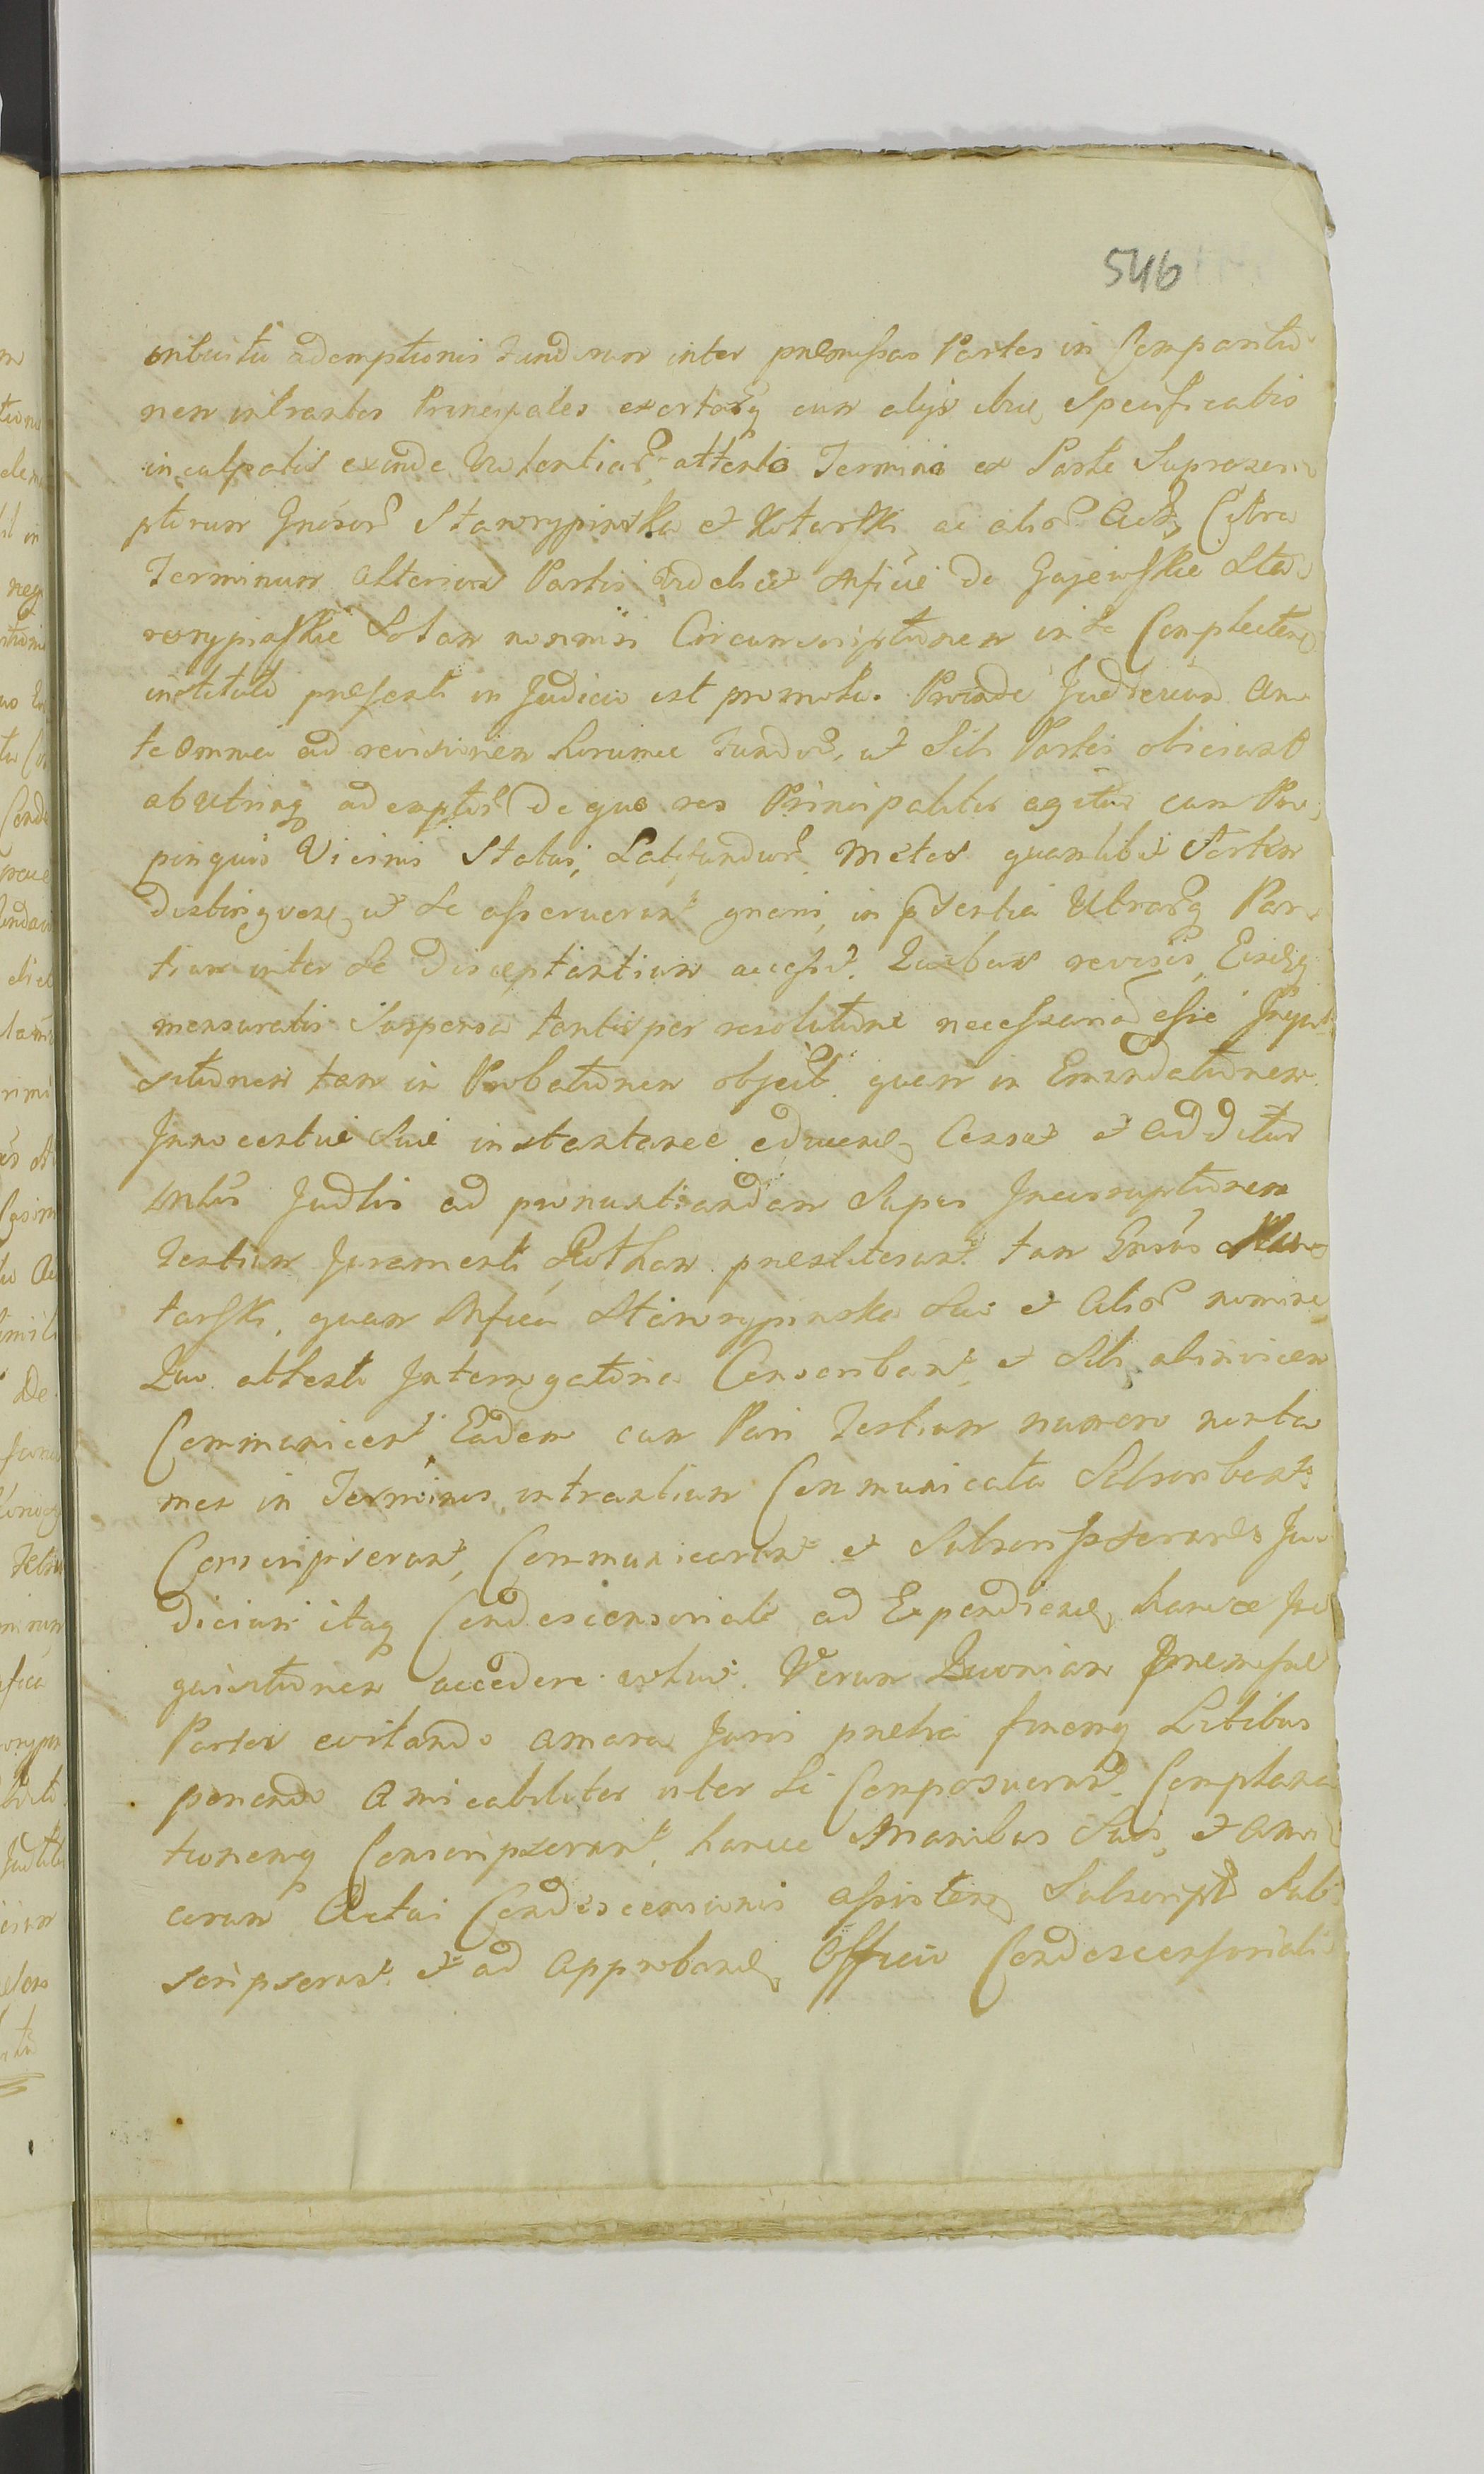 546
intuitu ademptionis Fundorum inter præmissas Partes in Compartitio
nem intrantes Principales exortarq cum alijs ibiq specificatis
inculpatis exinde attento Termino ex Parte Suprascri
ptorum Gnosor Stawrypinska et Kotarski ac alior Act, Citra
Terminum alterius Partis videlicet Mficæ de Gajewskie Sta
wrypinskie Solam nonnisi Circumscriptionem in se Complecten
instituti præsenti in Judicio est promotus. Proinde Judicium An
te omnia ad revisionem horumce Fundor, ut Sibi Partes obiciunt
abutrinq ademptor de quo res Principaliter agitur cum Pro
pinquis Vicinis Status, Latifundior Metas quamlibet Sortem
distinguen, ut se asseruerunt gnari, in pntia Utrarq Par
tium inter se Disceptantium accessit. Quibus revisis, Eisdq
mensuratis Suspensa tantisper resolutione necessariam esse Inqui
sitionem tam in Probationem object quam in Emundationem
Innocentiæ Suæ instantanee educen, Censet et additur
Intus Judtis ad pronuntiandam Super Incorruptionem
Testium Juramenti Rotham præstiterunt tam Gnsus Ko
tarski, quam Mfica Stawrypinska Suo et Alior nomine
Quo attento Interrogatoria Conscribant, et Sibi abinvicem
Communicent Eadem cum Pari Testium numero non ta
men in Terminos intrantium Communicata Subscribant
Conscripserunt, Communicarunt et Subscripserunt Ju
dicium itaq Condescensoriale ad Expedien, hancce In
quisitionem accedere voluit. Verum Quoniam Præmissæ
Partes evitando amara Juris prælia finemq Litibus
ponendo Amicabiliter inter se Composuerunt Complana
tionemq Conscripserunt, hancce Manibus Suis, et Ami
corum Actui Condescensionis assisten, Subscript Sub
scripserunt et ad Approban, Officio Condescensoriali